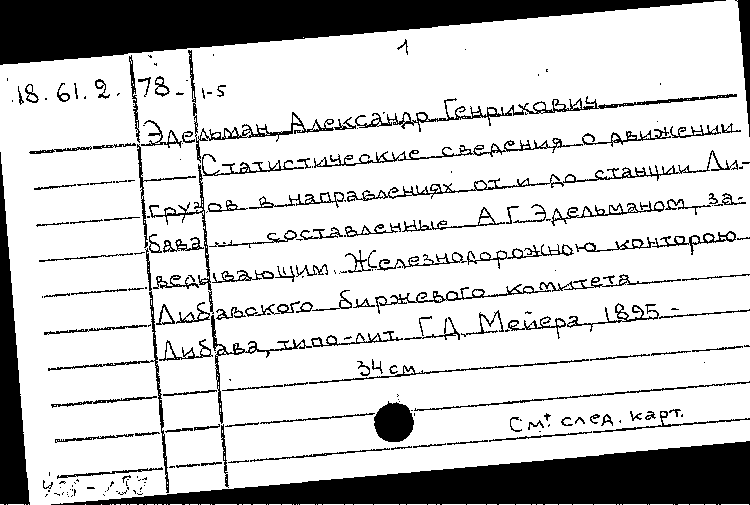 1
18.61.2. 78- 1-5
Эдельман, Александр Генрихович
Статистические сведения о движении
грузов в направлениях от и до станции Ли-
бава ..., составленные А.Г. Эдельманом, за-
ведывающим Железнодорожною конторою
Либавского биржевого комитета.
Либава, типо-лит. Г.Д. Мейера, 1895 -
34 см.
См. след. карт.